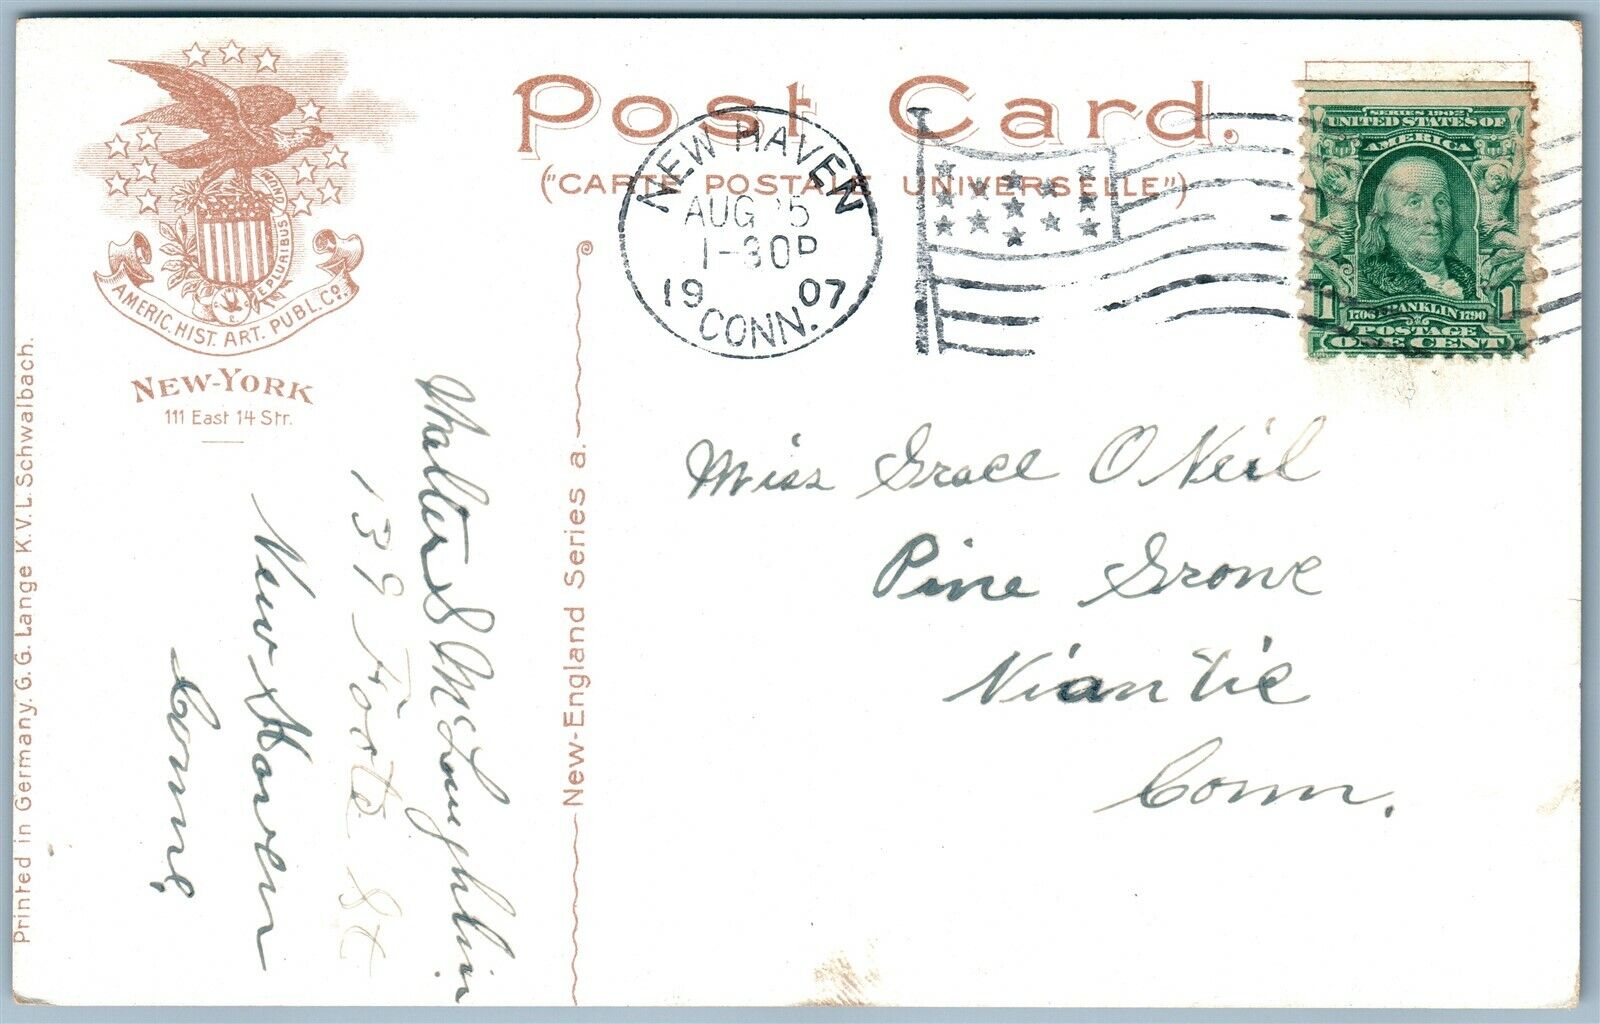 Post Card.
("CARTE POSTALE UNIVERSELLE")
E PLURIBUS UNUM
AMERIC. HIST. ART. PUBL. Co.
NEW-YORK
111 East 14 Str.
NEW HAVEN
AUG 5
1-30P
1907
CONN.
SERIES 1902
UNITED STATES OF
AMERICA
1 1
1706 FRANKLIN 1790
POSTAGE
ONE CENT
Walter S McLoughlin
139 St
New Haven
Conn,
New-England Series a.
Printed in Germany. G. G. Lange K. V. L. Schwalbach.
Miss Grace O Neil
Pine Grove
Niantic
Conn.